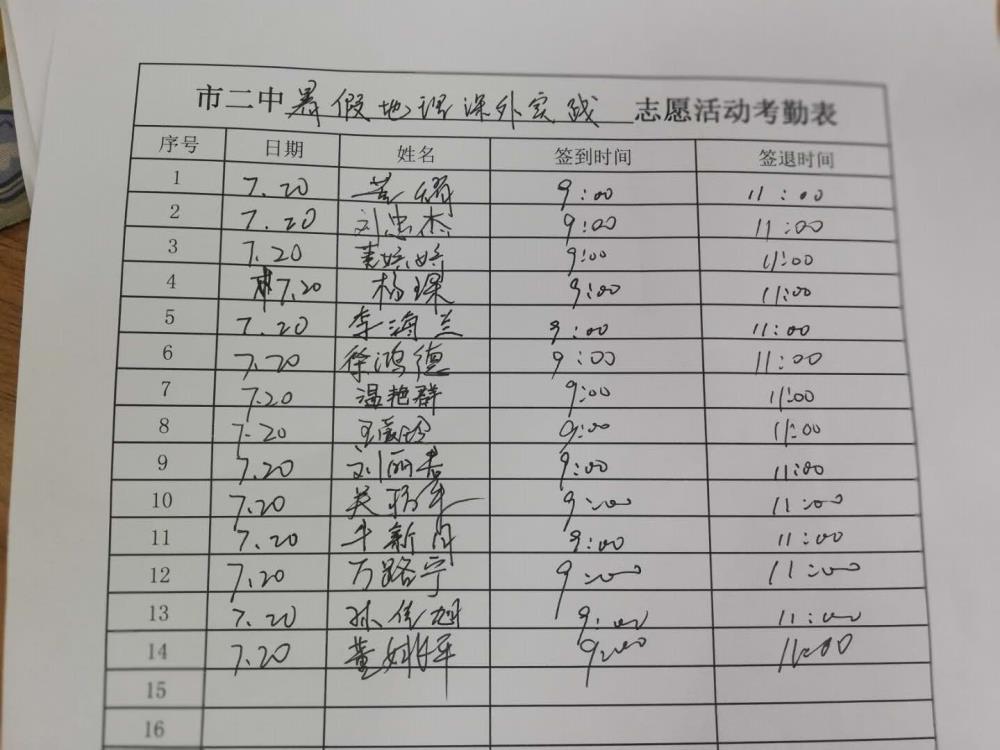 市二中暑假地理课外实践 志愿活动考勤表
序号 日期 姓名 签到时间 签退时间
1 7.20 9:00 11:00
2 7.20 刘忠杰 9:00 11:00
3 7.20 9:00 11:00
4 7.20 杨琛 9:00 11:00
5 7.20 李海兰 9:00 11:00
6 7.20 徐鸿德 9:00 11:00
7 7.20 温艳群 9:00 11:00
8 7.20 9:00 11:00
9 7.20 刘丽春 9:00 11:00
10 7.20 9:00 11:00
11 7.20 牛新月 9:00 11:00
12 7.20 万路宁 9:00 11:00
13 7.20 孙佳旭 9:00 11:00
14 7.20 9:00 11:00
15
16